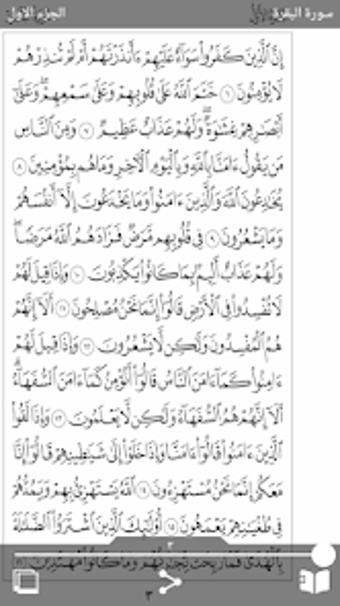 سورة البقرة الجزء الأول
إِنَّ ٱلَّذِينَ كَفَرُوا۟ سَوَآءٌ عَلَيْهِمْ ءَأَنذَرْتَهُمْ أَمْ لَمْ تُنذِرْهُمْ
لَا يُؤْمِنُونَ ٦ خَتَمَ ٱللَّهُ عَلَىٰ قُلُوبِهِمْ وَعَلَىٰ سَمْعِهِمْ ۖ وَعَلَىٰٓ
أَبْصَٰرِهِمْ غِشَٰوَةٌ ۖ وَلَهُمْ عَذَابٌ عَظِيمٌ ٧ وَمِنَ ٱلنَّاسِ
مَن يَقُولُ ءَامَنَّا بِٱللَّهِ وَبِٱلْيَوْمِ ٱلْءَاخِرِ وَمَا هُم بِمُؤْمِنِينَ ٨
يُخَٰدِعُونَ ٱللَّهَ وَٱلَّذِينَ ءَامَنُوا۟ وَمَا يَخْدَعُونَ إِلَّآ أَنفُسَهُمْ
وَمَا يَشْعُرُونَ ٩ فِى قُلُوبِهِم مَّرَضٌ فَزَادَهُمُ ٱللَّهُ مَرَضًا ۖ
وَلَهُمْ عَذَابٌ أَلِيمٌۢ بِمَا كَانُوا۟ يَكْذِبُونَ ١٠ وَإِذَا قِيلَ لَهُمْ
لَا تُفْسِدُوا۟ فِى ٱلْأَرْضِ قَالُوٓا۟ إِنَّمَا نَحْنُ مُصْلِحُونَ ١١ أَلَآ إِنَّهُمْ
هُمُ ٱلْمُفْسِدُونَ وَلَٰكِن لَّا يَشْعُرُونَ ١٢ وَإِذَا قِيلَ لَهُمْ
ءَامِنُوا۟ كَمَآ ءَامَنَ ٱلنَّاسُ قَالُوٓا۟ أَنُؤْمِنُ كَمَآ ءَامَنَ ٱلسُّفَهَآءُ ۗ
أَلَآ إِنَّهُمْ هُمُ ٱلسُّفَهَآءُ وَلَٰكِن لَّا يَعْلَمُونَ ١٣ وَإِذَا لَقُوا۟
ٱلَّذِينَ ءَامَنُوا۟ قَالُوٓا۟ ءَامَنَّا وَإِذَا خَلَوْا۟ إِلَىٰ شَيَٰطِينِهِمْ قَالُوٓا۟ إِنَّا
مَعَكُمْ إِنَّمَا نَحْنُ مُسْتَهْزِءُونَ ١٤ ٱللَّهُ يَسْتَهْزِئُ بِهِمْ وَيَمُدُّهُمْ
فِى طُغْيَٰنِهِمْ يَعْمَهُونَ ١٥ أُو۟لَٰٓئِكَ ٱلَّذِينَ ٱشْتَرَوُا۟ ٱلضَّلَٰلَةَ
٣
بِٱلْهُدَىٰ فَمَا رَبِحَت تِّجَٰرَتُهُمْ وَمَا كَانُوا۟ مُهْتَدِينَ ١٦
٣